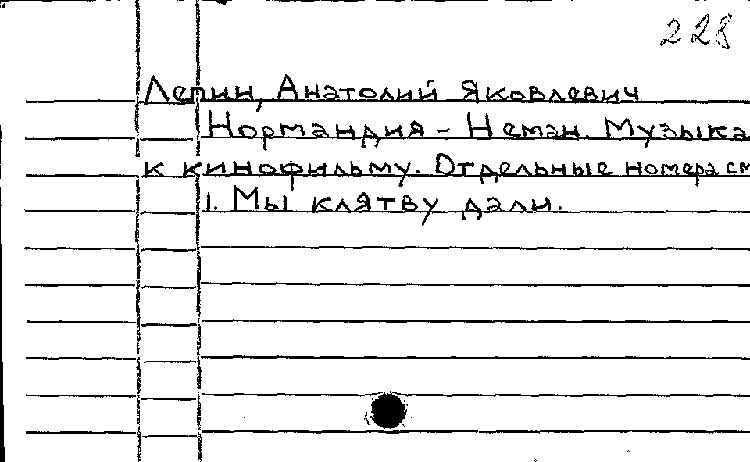 228
Лепин, Анатолий Яковлевич
Нормандия - Неман. Музыка
к кинофильму. Отдельные номера см
1. Мы клятву дали.